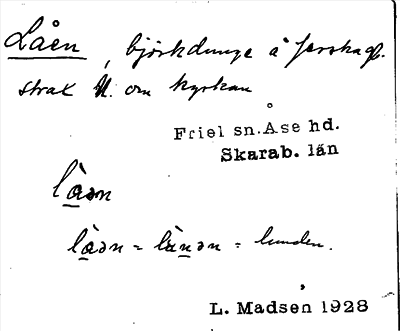 Låen, björkdunge å
strax N. om kyrkan
Friel sn. Åse hd.
Skarab. län
làən
làən = lànən = lunden.
L. Madsen 1928